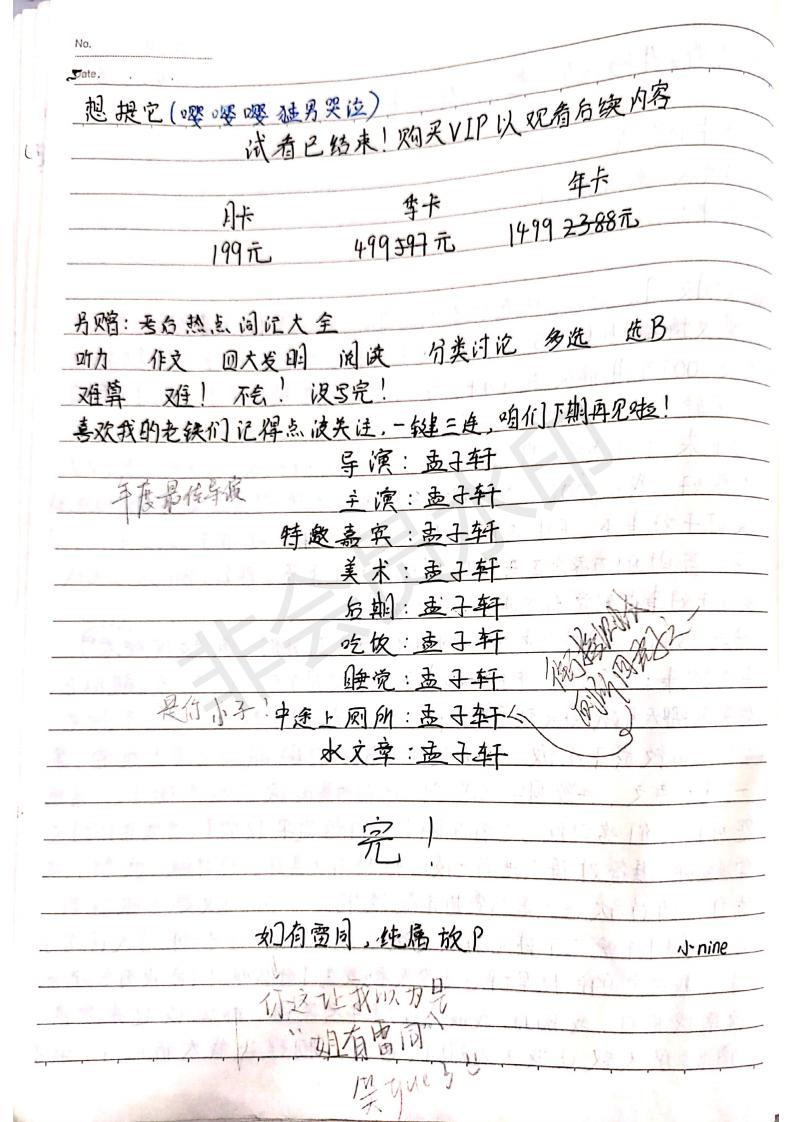 No.
Date.
想提它(嘤嘤嘤猛男哭泣)
试看已结束!购买VIP以观看后续内容
月卡 季卡 年卡
199元 499 597元 1499 2388元
另赠:考后热点词汇大全
听力 作文 四大发明 阅读 分类讨论 多选 选B
难算 难! 不会! 没写完!
喜欢我的老铁们记得点波关注,一键三连,咱们下期再见啦!
导演:孟子轩
年度最佳导演
主演:孟子轩
特邀嘉宾:孟子轩
美术:孟子轩
后期:孟子轩
吃饮:孟子轩
睡觉:孟子轩
是你小子!
中途上厕所:孟子轩
水文章:孟子轩
完!
如有雷同,纯属放P
小nine
你这让我以为是
"姐有雷同"
笑yue了
非会员水印